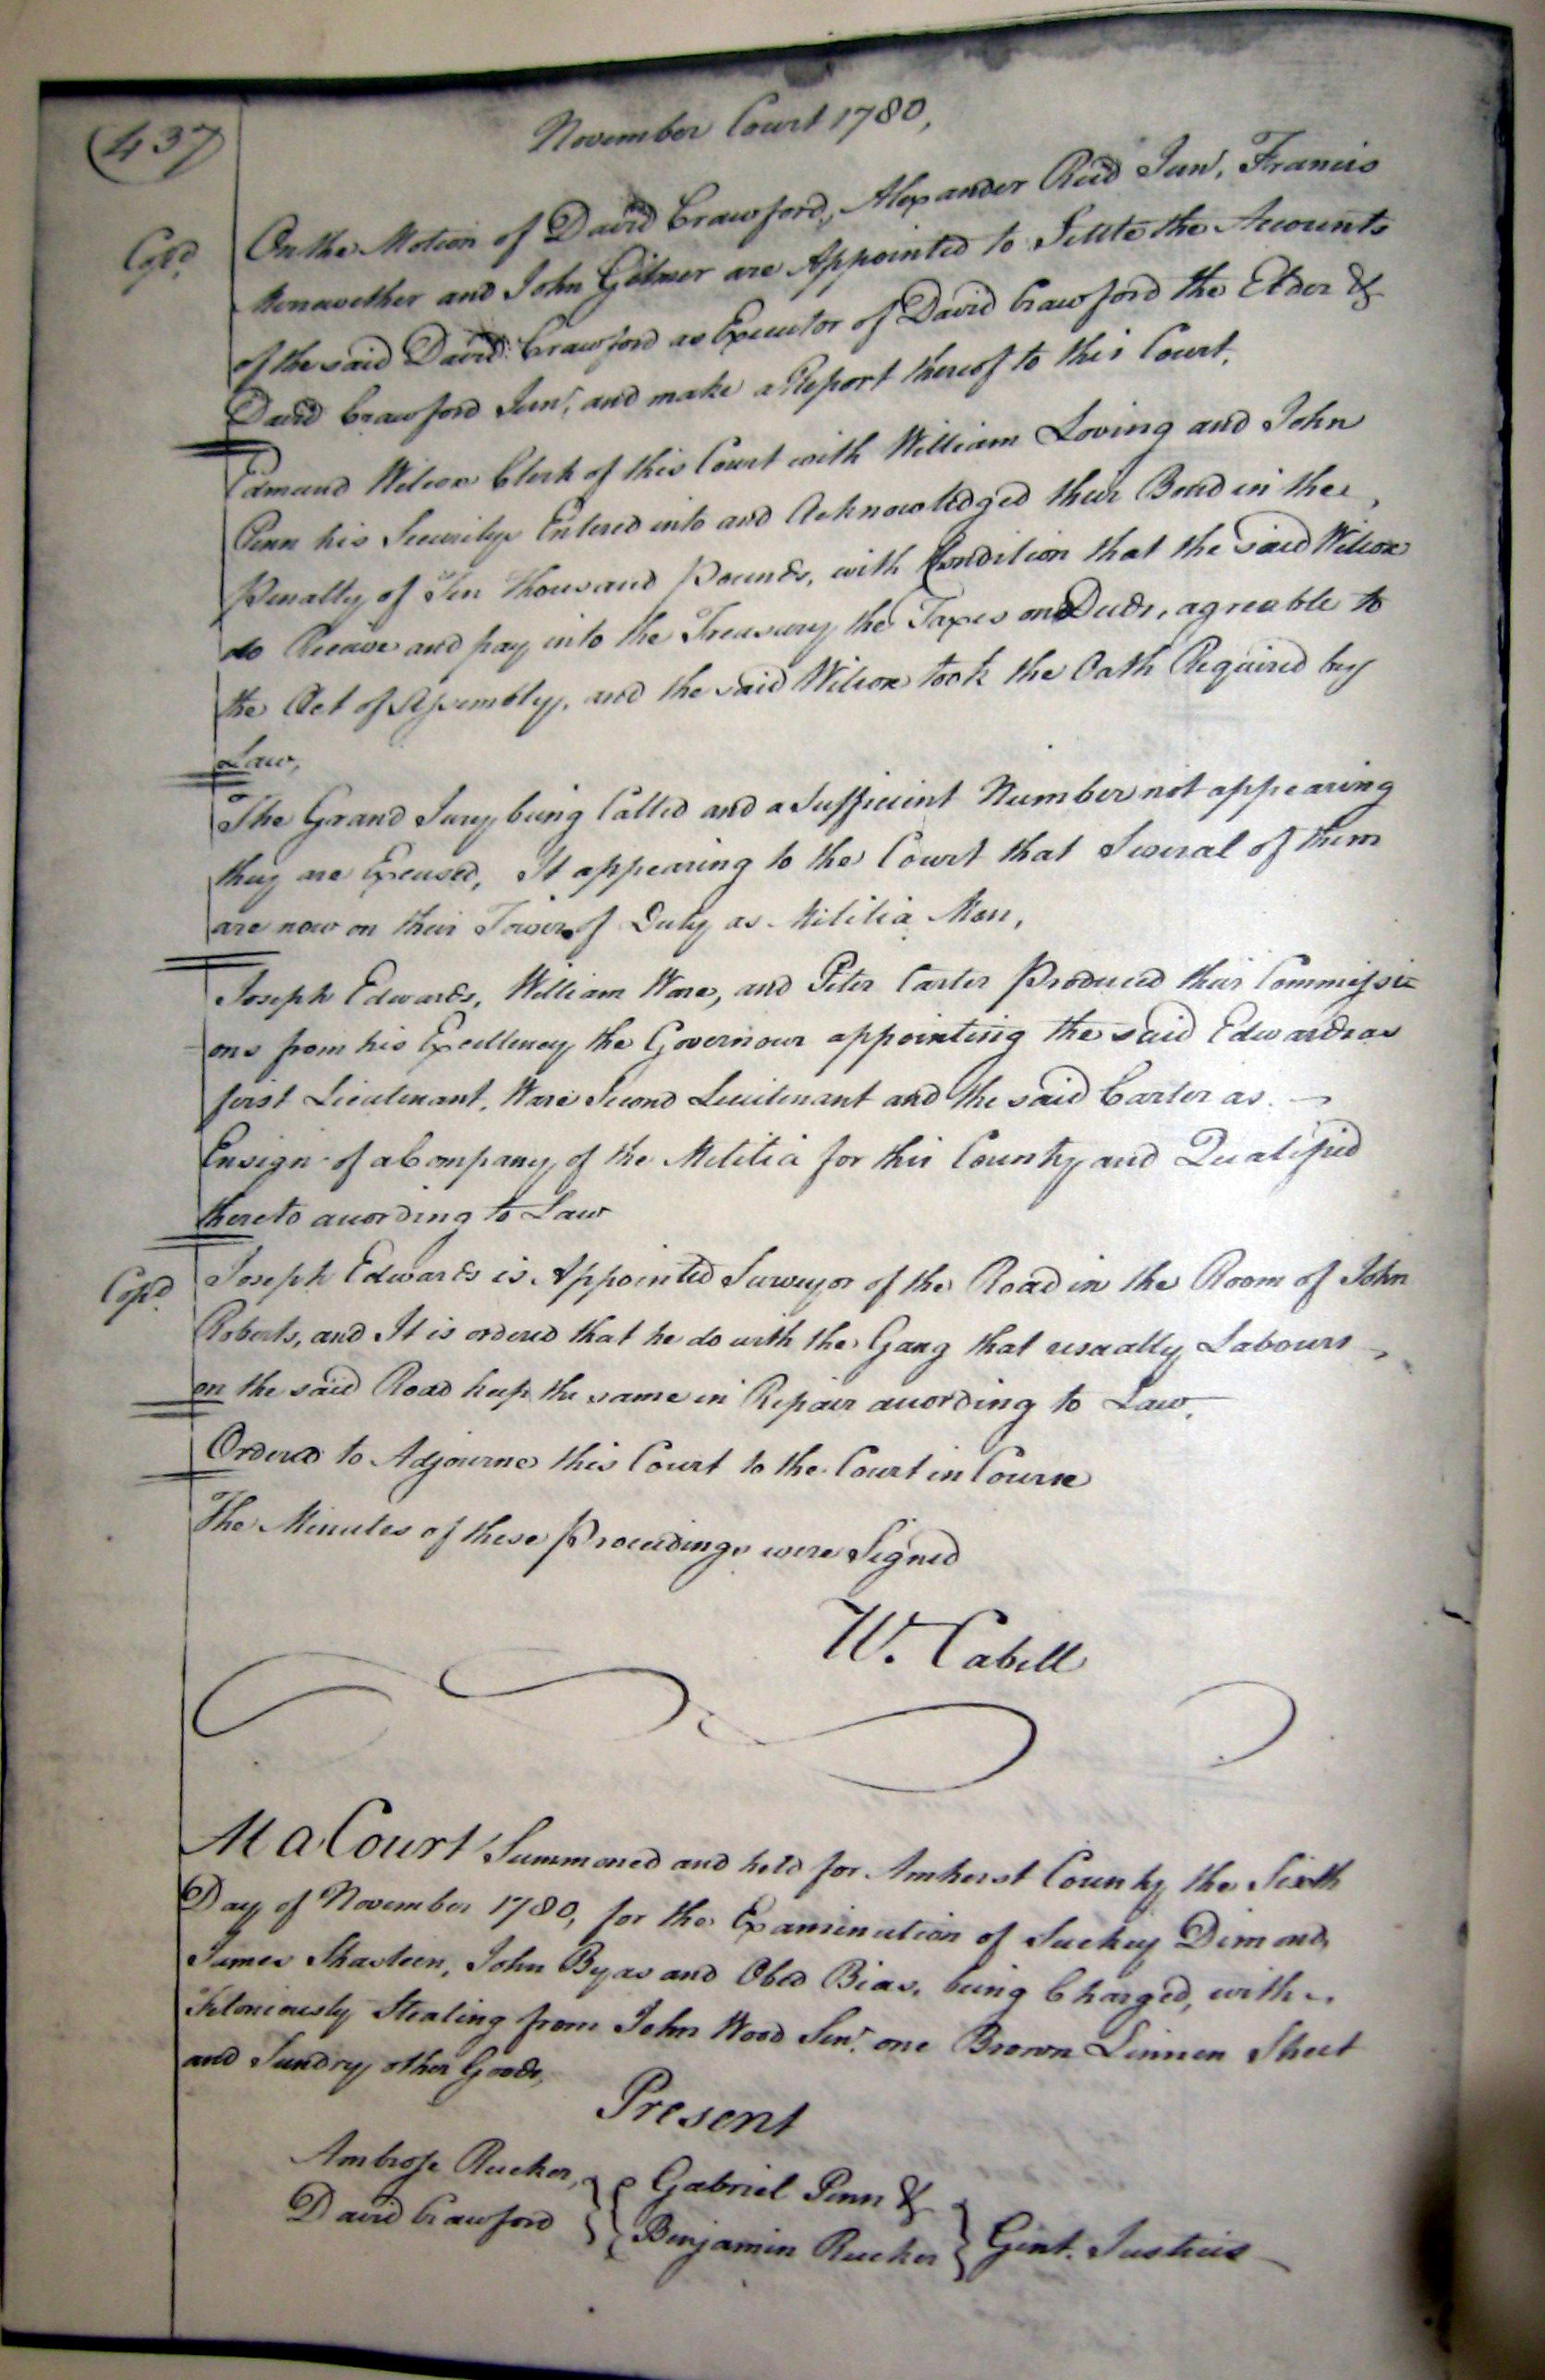 437
November Court 1780,
Cop'd
On the Motion of David Crawford, Alexander Reid Junr, Francis
Merewether and John Gilmer are Appointed to Settle the Accounts
of the said David Crawford as Executor of David Crawford the Elder &
David Crawford Junr, and make a Report thereof to this Court.
Edmund Wilcox Clerk of this Court with William Loving and John
Penn his Security Entered into and Acknowledged their Bond in the
Penalty of Ten Thousand Pounds, with Condition that the said Wilcox
do Receave and pay into the Treasury the Taxes on Deeds, agreable to
the Act of Assembly, and the said Wilcox took the Oath Required by
Law,
The Grand Jury being Called and a Sufficient Number not appearing
they are Excused, It appearing to the Court that Several of them
are now on their Tower of Duty as Militia Men,
Joseph Edwards, William Ware, and Peter Carter Produced their Commissi=
ons from his Excellency the Governour appointing the said Edwards as
first Lieutenant, Ware Second Lieutenant and the said Carter as
Ensign of a Company of the Militia for this County and Qualified
thereto according to Law
Cop'd
Joseph Edwards is Appointed Surveyor of the Road in the Room of John
Roberts, and It is ordered that he do with the Gang that usually Labours
on the said Road keep the same in Repair according to Law.
Ordered to Adjourne this Court to the Court in Course
The Minutes of these Proceedings were Signed
W. Cabell
At a Court Summoned and held for Amherst County the Sixth
Day of November 1780, for the Examination of Suckey Dimond,
James Shasteen, John Byas and Obed Bias, being Charged, with
Feloniously Stealing from John Wood Senr. one Brown Linnen Sheet
and Sundry other Goods,
Present
Ambrose Rucker, Gabriel Penn &
David Crawford Benjamin Rucker Gent. Justices